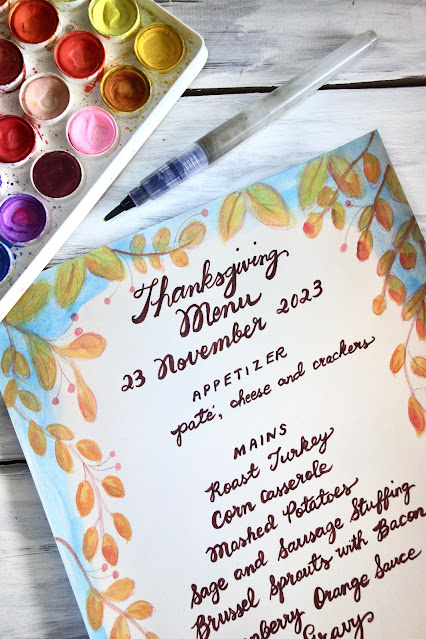 Thanksgiving
Menu
23 November 2023
APPETIZER
paté, cheese and crackers
MAINS
Roast Turkey
Corn Casserole
Mashed Potatoes
Sage and Sausage Stuffing
Brussel Sprouts with Bacon
Orange Sauce
Gravy